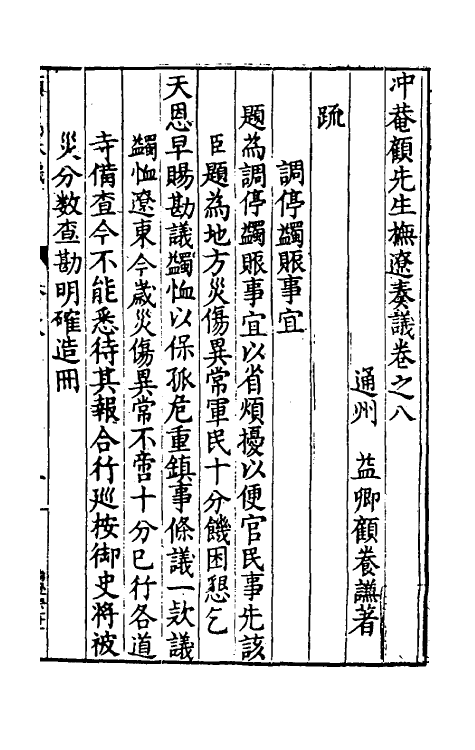 冲菴顧先生撫遼奏議卷之八
通州 益卿顧養謙著
疏
調停蠲賑事宜
題為調停蠲賑事宜以省煩擾以便官民事先該
臣題為地方災傷異常軍民十分饑困懇乞
天恩早賜勘議蠲恤以保孤危重鎮事條議一款議
蠲恤遼東今歲災傷異常不啻十分已行各道
寺備查今不能悉待其報合行廵按御史將被
災分數查勘明確造冊